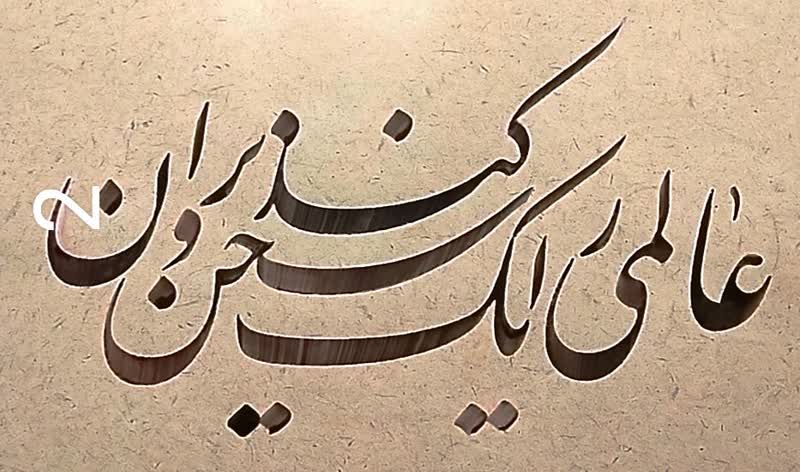 عالمی را یک سخن ویران کند